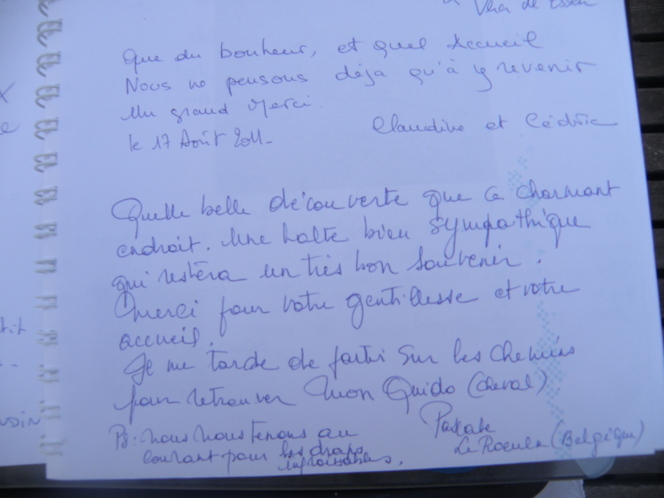 Que du bonheur, et quel accueil
Nous ne pensons déjà qu'à y revenir
Un grand Merci.
le 17 Août 2011-
Claudine et Cédric
Quelle belle découverte que ce charmant
endroit. Une halte bien sympathique
qui restera un très bon souvenir.
Merci pour votre gentillesse et votre
accueil.
Je me tarde de partir sur les chemins
pour retrouver mon Quido (cheval)
Pascale
Le Roeulx (Belgique)
PS: nous nous tenons au
courant pour les draps